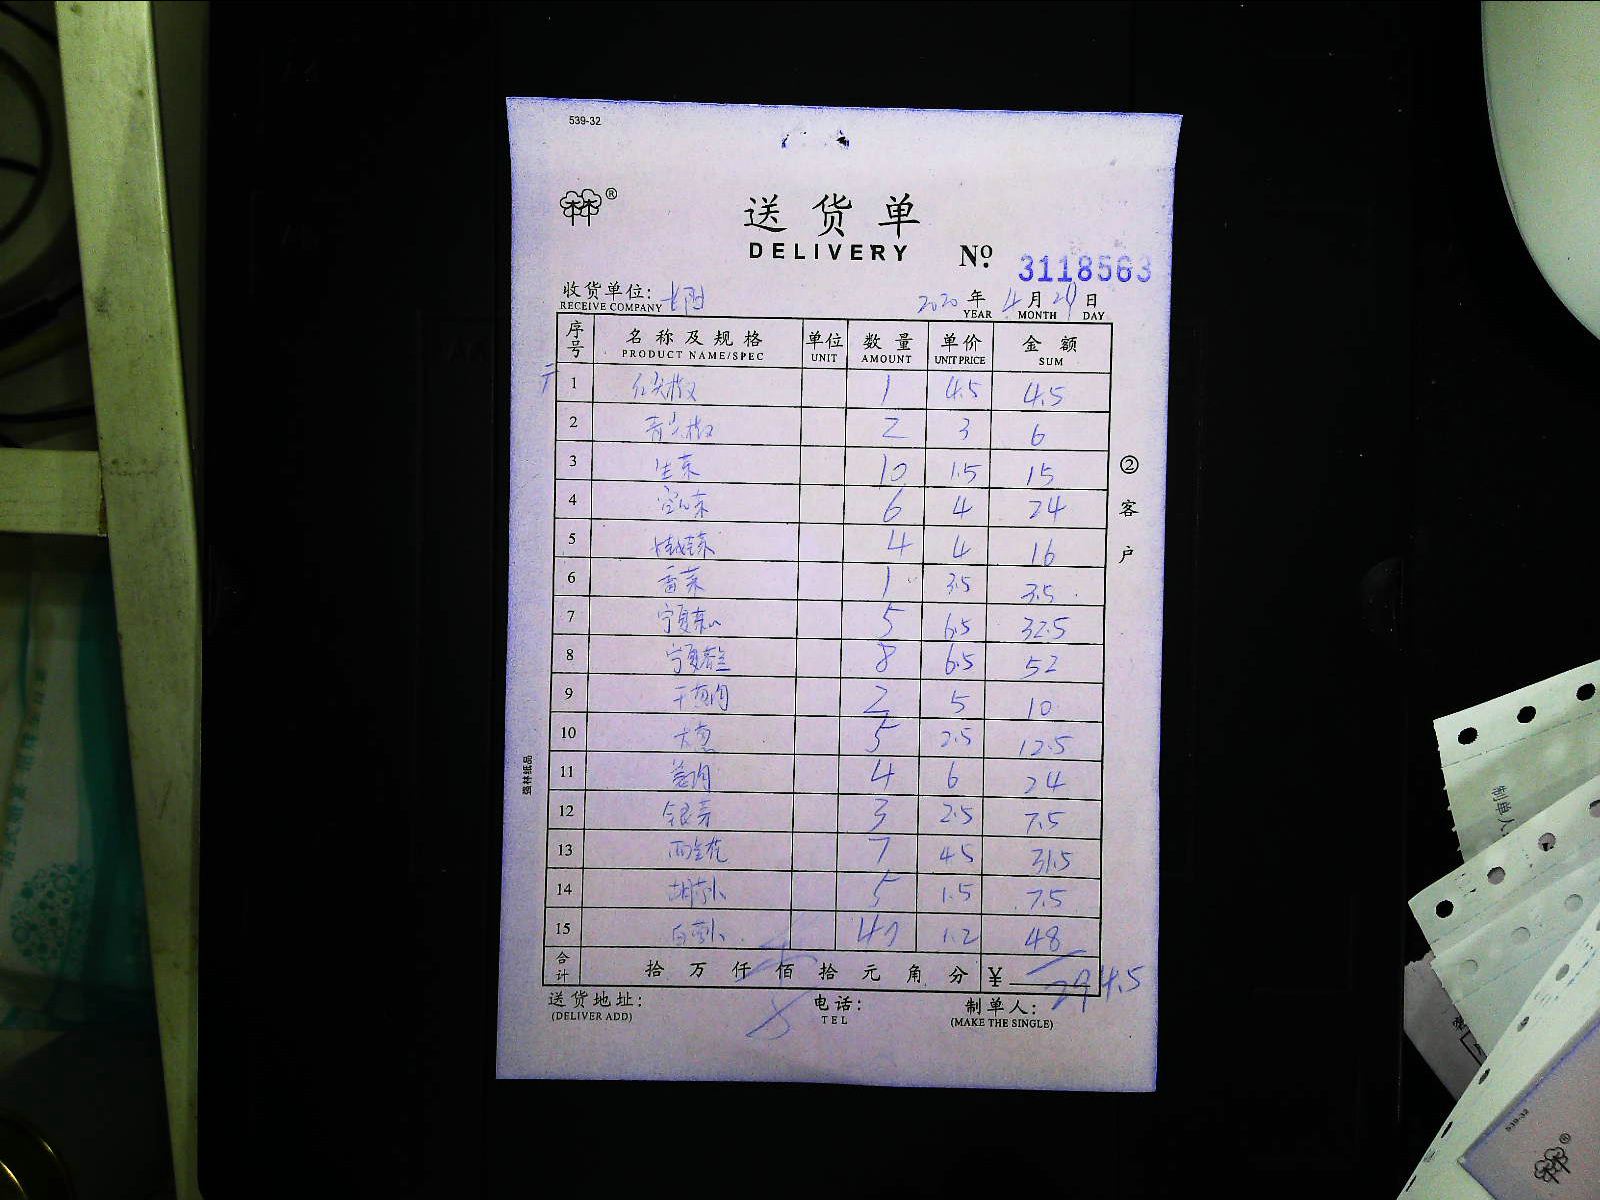 539-32
送货单
DELIVERY
№ 3118563
收货单位: 长阳 2020 年 4 月 29 日
RECEIVE COMPANY YEAR MONTH DAY
序号 名称及规格 单位 数量 单价 金额
PRODUCT NAME/SPEC UNIT AMOUNT UNIT PRICE SUM
1 红尖椒 1 4.5 4.5
2 青尖椒 2 3 6
3 生菜 10 1.5 15
4 空心菜 6 4 24
5 4 4 16
6 香菜 1 3.5 3.5
7 宁夏菜心 5 6.5 32.5
8 宁夏芥兰 8 6.5 52
9 干葱肉 2 5 10
10 大葱 5 2.5 12.5
11 姜肉 4 6 24
12 银芽 3 2.5 7.5
13 西兰花 7 4.5 31.5
14 胡萝卜 5 1.5 7.5
15 白萝卜 40 1.2 48
合计 拾 万 仟 佰 拾 元 角 分 ¥ 294.5
送货地址: 电话: 制单人:
(DELIVER ADD) TEL (MAKE THE SINGLE)
② 客户
强林纸品
制单人
539-32